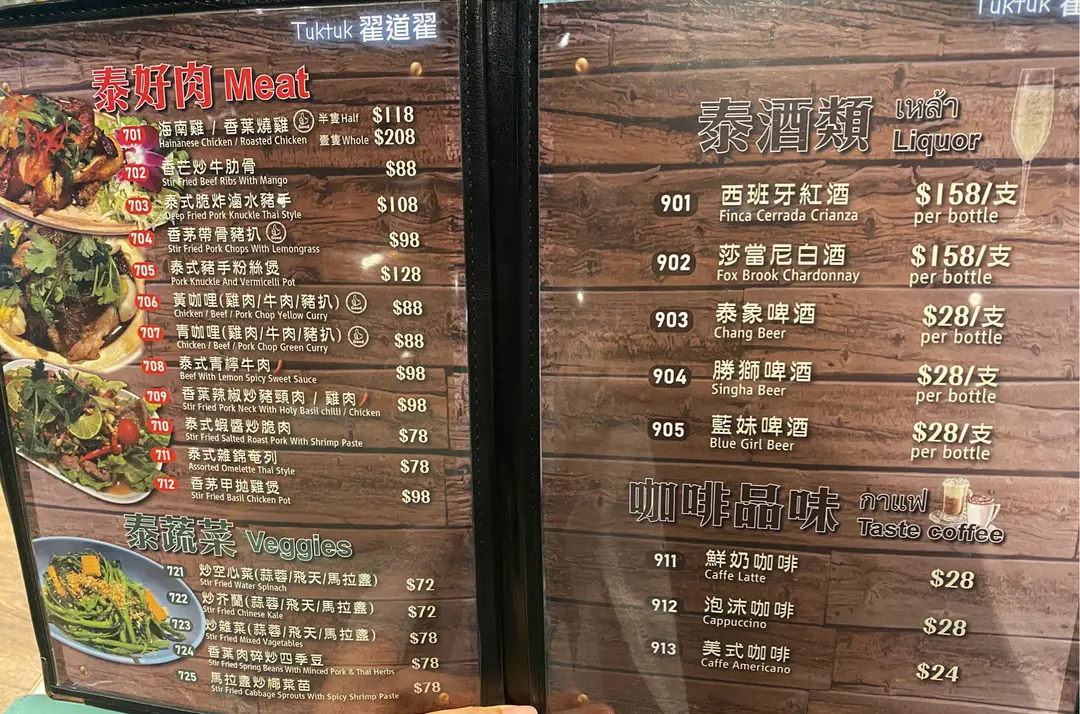 Tuktuk 翟道翟
泰好肉 Meat
701 海南雞 / 香葉燒雞 半隻Half $118
Hainanese Chicken / Roasted Chicken 壹隻Whole $208
702 香芒炒牛肋骨 $88
Stir Fried Beef Ribs With Mango
703 泰式脆炸滷水豬手 $108
Deep Fried Pork Knuckle Thai Style
704 香茅帶骨豬扒 $98
Stir Fried Pork Chops With Lemongrass
705 泰式豬手粉絲煲 $128
Pork Knuckle And Vermicelli Pot
706 黃咖喱(雞肉/牛肉/豬扒) $88
Chicken / Beef / Pork Chop Yellow Curry
707 青咖喱(雞肉/牛肉/豬扒) $88
Chicken / Beef / Pork Chop Green Curry
708 泰式青檸牛肉 $98
Beef With Lemon Spicy Sweet Sauce
709 香葉辣椒炒豬頸肉 / 雞肉 $98
Stir Fried Pork Neck With Holy Basil chilli / Chicken
710 泰式蝦醬炒脆肉 $78
Stir Fried Salted Roast Pork With Shrimp Paste
711 泰式雜錦奄列 $78
Assorted Omelette Thai Style
712 香茅甲拋雞煲 $98
Stir Fried Basil Chicken Pot
泰蔬菜 Veggies
721 炒空心菜(蒜蓉/飛天/馬拉盞) $72
Stir Fried Water Spinach
722 炒芥蘭(蒜蓉/飛天/馬拉盞) $72
Stir Fried Chinese Kale
723 炒雜菜(蒜蓉/飛天/馬拉盞) $78
Stir Fried Mixed Vagetables
724 香葉肉碎炒四季豆 $78
Stir Fried Spring Beans With Minced Pork & Thai Herbs
725 馬拉盞炒椰菜苗 $78
Stir Fried Cabbage Sprouts With Spicy Shrimp Paste
Tuktuk
泰酒類 เหล้า
Liquor
901 西班牙紅酒 $158/支
Finca Cerrada Crianza per bottle
902 莎當尼白酒 $158/支
Fox Brook Chardonnay per bottle
903 泰象啤酒 $28/支
Chang Beer per bottle
904 勝獅啤酒 $28/支
Singha Beer per bottle
905 藍妹啤酒 $28/支
Blue Girl Beer per bottle
咖啡品味 กาแฟ
Taste coffee
911 鮮奶咖啡 $28
Caffe Latte
912 泡沫咖啡 $28
Cappuccino
913 美式咖啡 $24
Caffe Americano